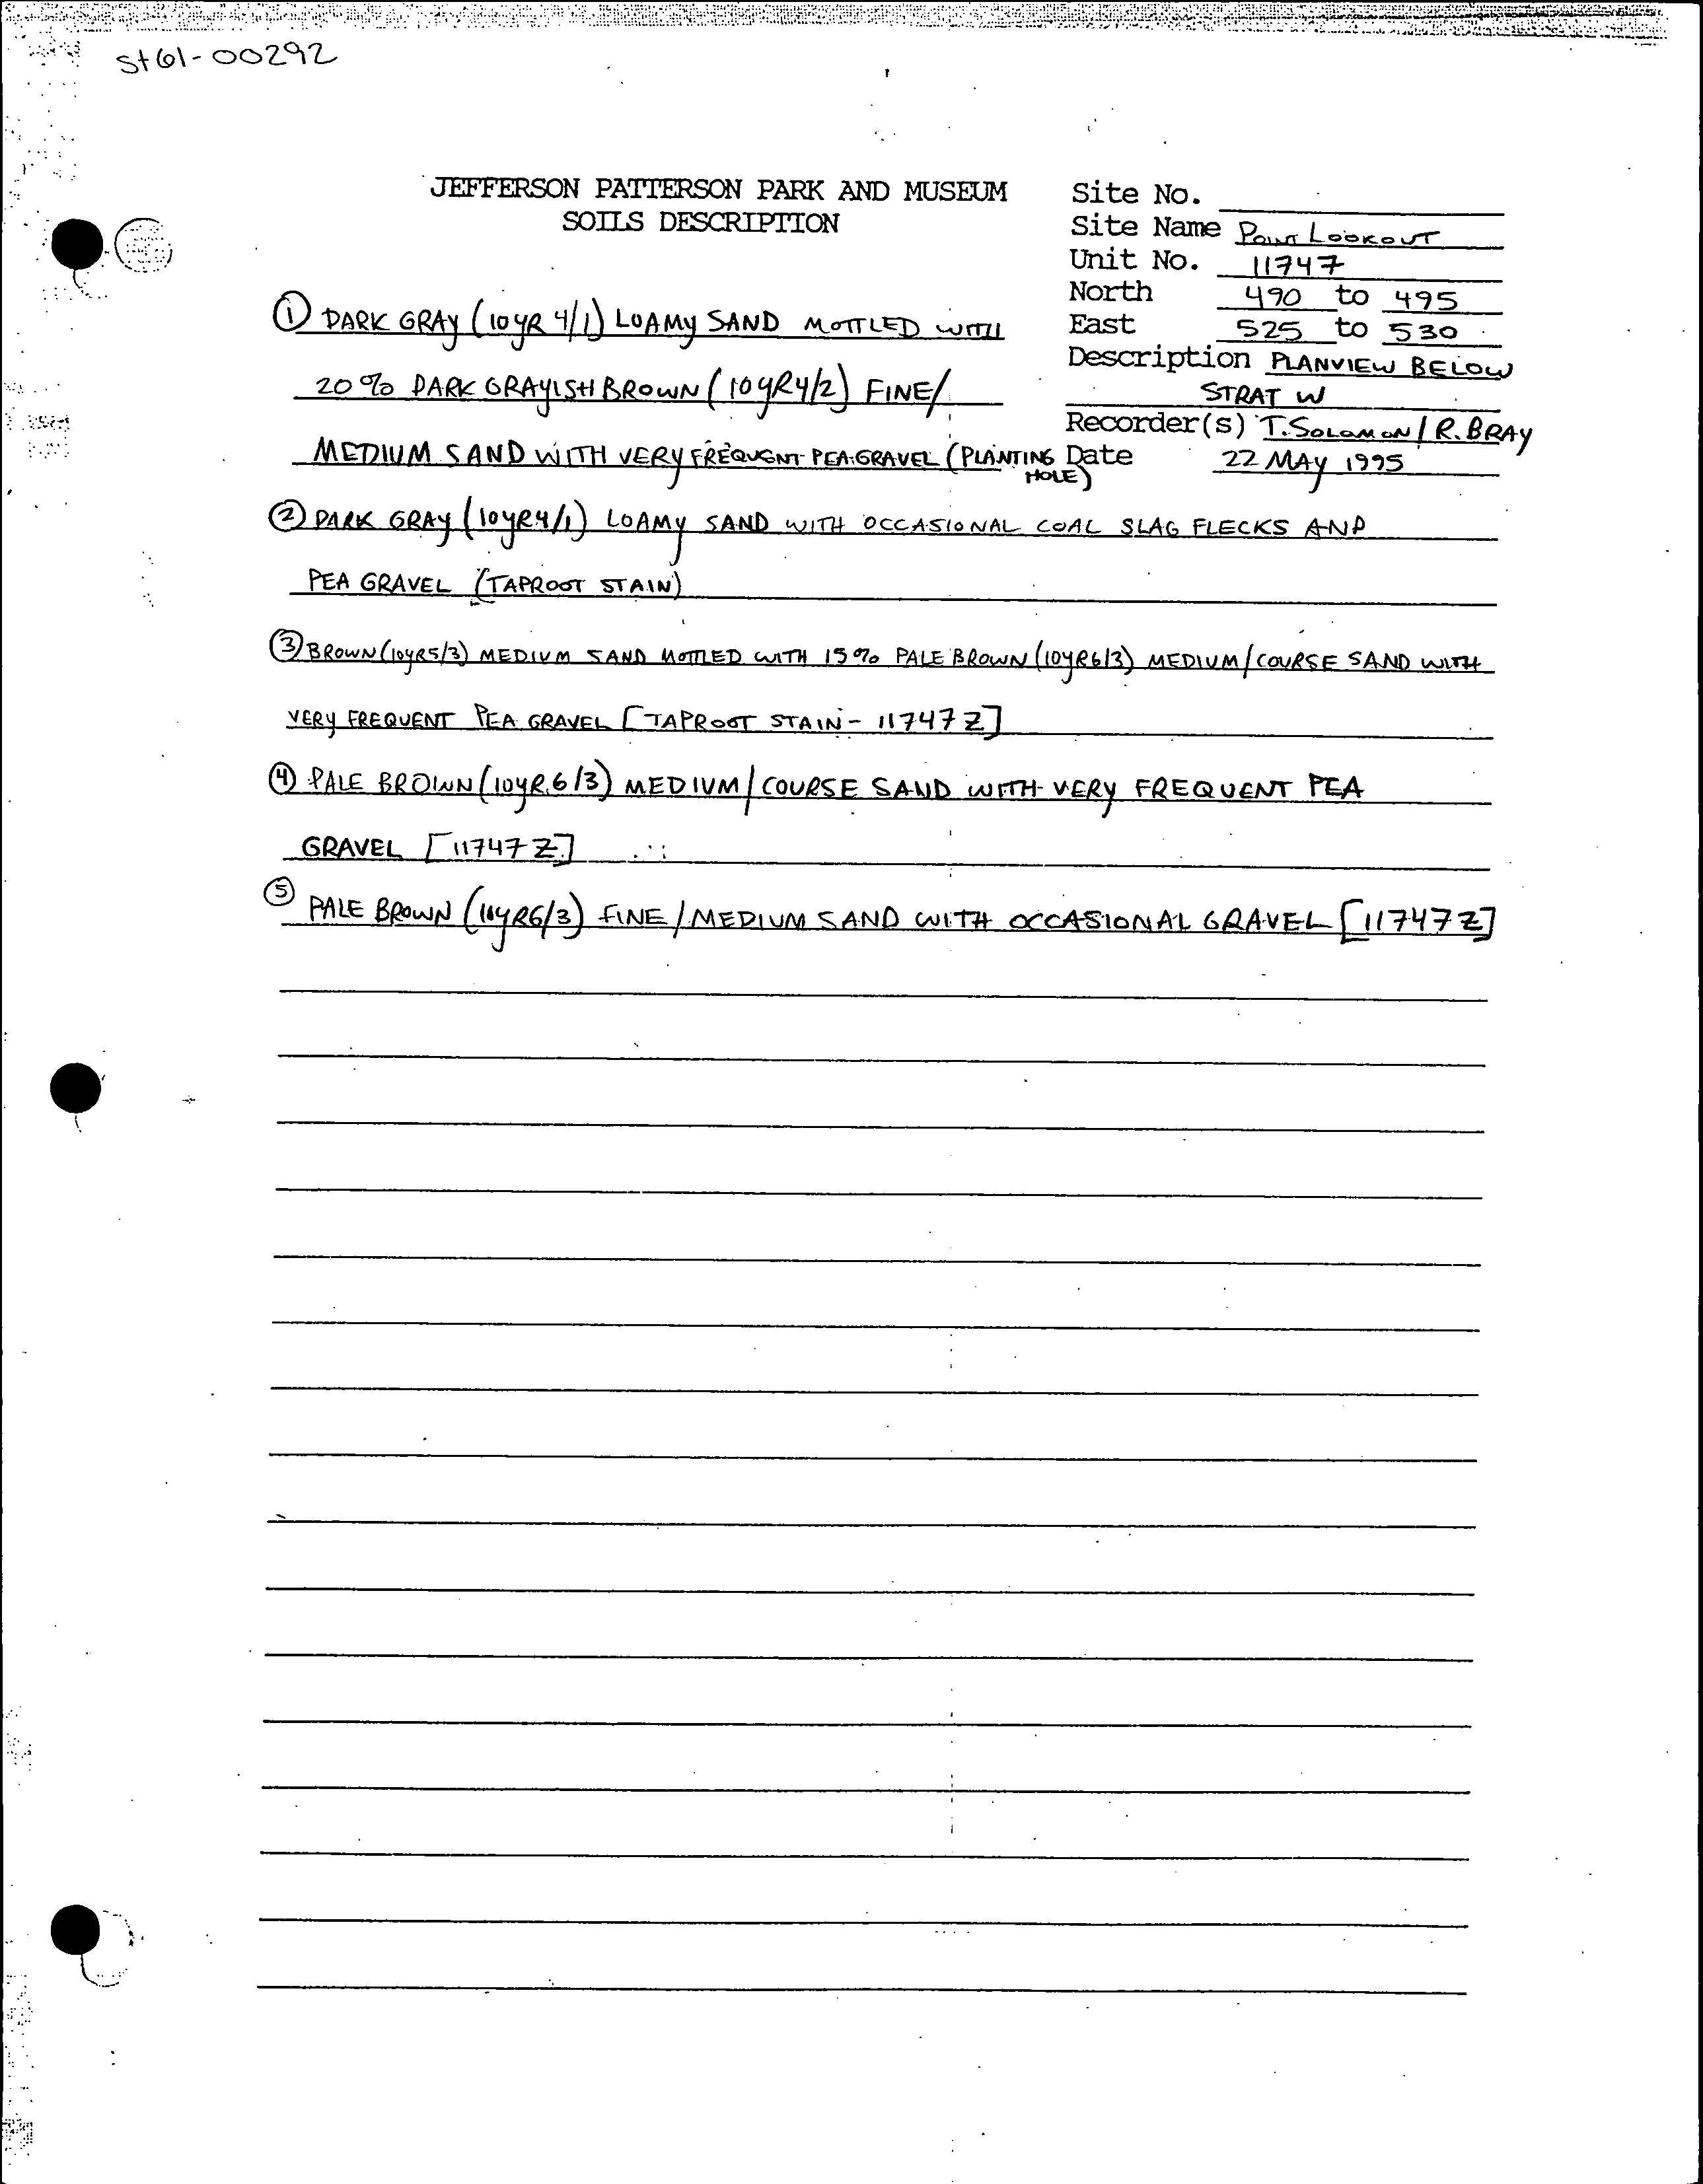 st61-00292
JEFFERSON PATTERSON PARK AND MUSEUM
SOILS DESCRIPTION
Site No.
Site Name POINT LOOKOUT
Unit No. 11747
North 490 to 495
East 525 to 530
Description PLANVIEW BELOW
STRAT W
Recorder(s) T. SOLOMON / R. BRAY
Date 22 MAY 1995
① DARK GRAY (10YR 4/1) LOAMY SAND MOTTLED WITH
20% DARK GRAYISH BROWN (10YR4/2) FINE/
MEDIUM SAND WITH VERY FREQUENT PEA GRAVEL (PLANTING
HOLE)
② DARK GRAY (10YR4/1) LOAMY SAND WITH OCCASIONAL COAL SLAG FLECKS AND
PEA GRAVEL (TAPROOT STAIN)
③ BROWN (10YR5/3) MEDIUM SAND MOTTLED WITH 15% PALE BROWN (10YR6/3) MEDIUM/COURSE SAND WITH
VERY FREQUENT PEA GRAVEL [TAPROOT STAIN - 11747 Z]
④ PALE BROWN (10YR 6/3) MEDIUM/COURSE SAND WITH VERY FREQUENT PEA
GRAVEL [11747 Z]
⑤ PALE BROWN (10YR6/3) FINE/MEDIUM SAND WITH OCCASIONAL GRAVEL [11747 Z]